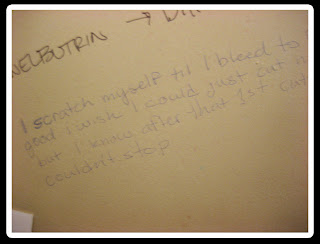 WELBUTRIN →
I scratch myself til I bleed to
good i wish I could just cut
but I know after that 1st cut
couldn't stop